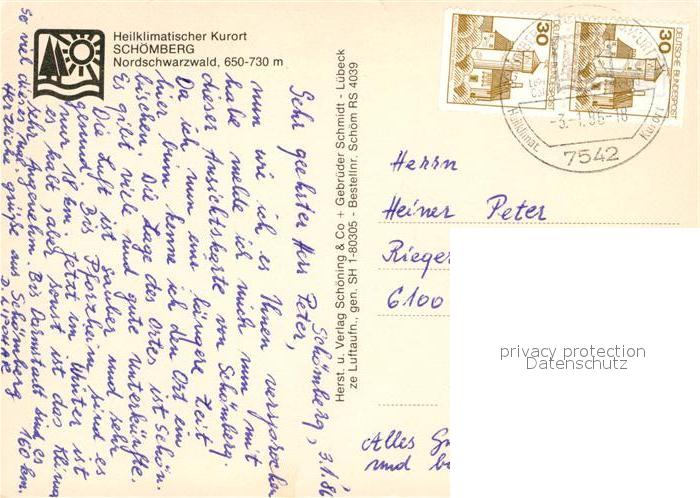 Heilklimatischer Kurort
SCHÖMBERG
Nordschwarzwald, 650-730 m
Schömberg, 3.1.86
Sehr geehrter Herr Peter,
nun wie ich es Ihnen versprochen
habe melde ich mich nun mit
dieser Ansichtskarte von Schömberg.
Da ich nun eine längere Zeit
hier bin kenne ich den Ort ein
bischen. Die Lage des Ortes ist schön.
Es gibt viele und gute Unterkünfte.
Die Luft ist sauber und sehr
gesund. Bis Pforzheim sind es
nur 18 km. Jetzt im Winter ist
es kalt, aber sonst ist das Klima
sehr angenehm. Bis Darmstadt sind es
160 km.
So viel dieses mal.
Herzliche grüße aus Schömberg
Herst. u. Verlag Schöning & Co + Gebrüder Schmidt - Lübeck
ze Luftaufn., gen. SH 1-80305 - Bestellnr. Schöm RS 4039
30
DEUTSCHE BUNDESPOST
30
DEUTSCHE BUNDESPOST
Heilklimat.
Kurort
7542
Herrn
Heiner Peter
Rieger
6100
privacy protection
Datenschutz
Alles
und